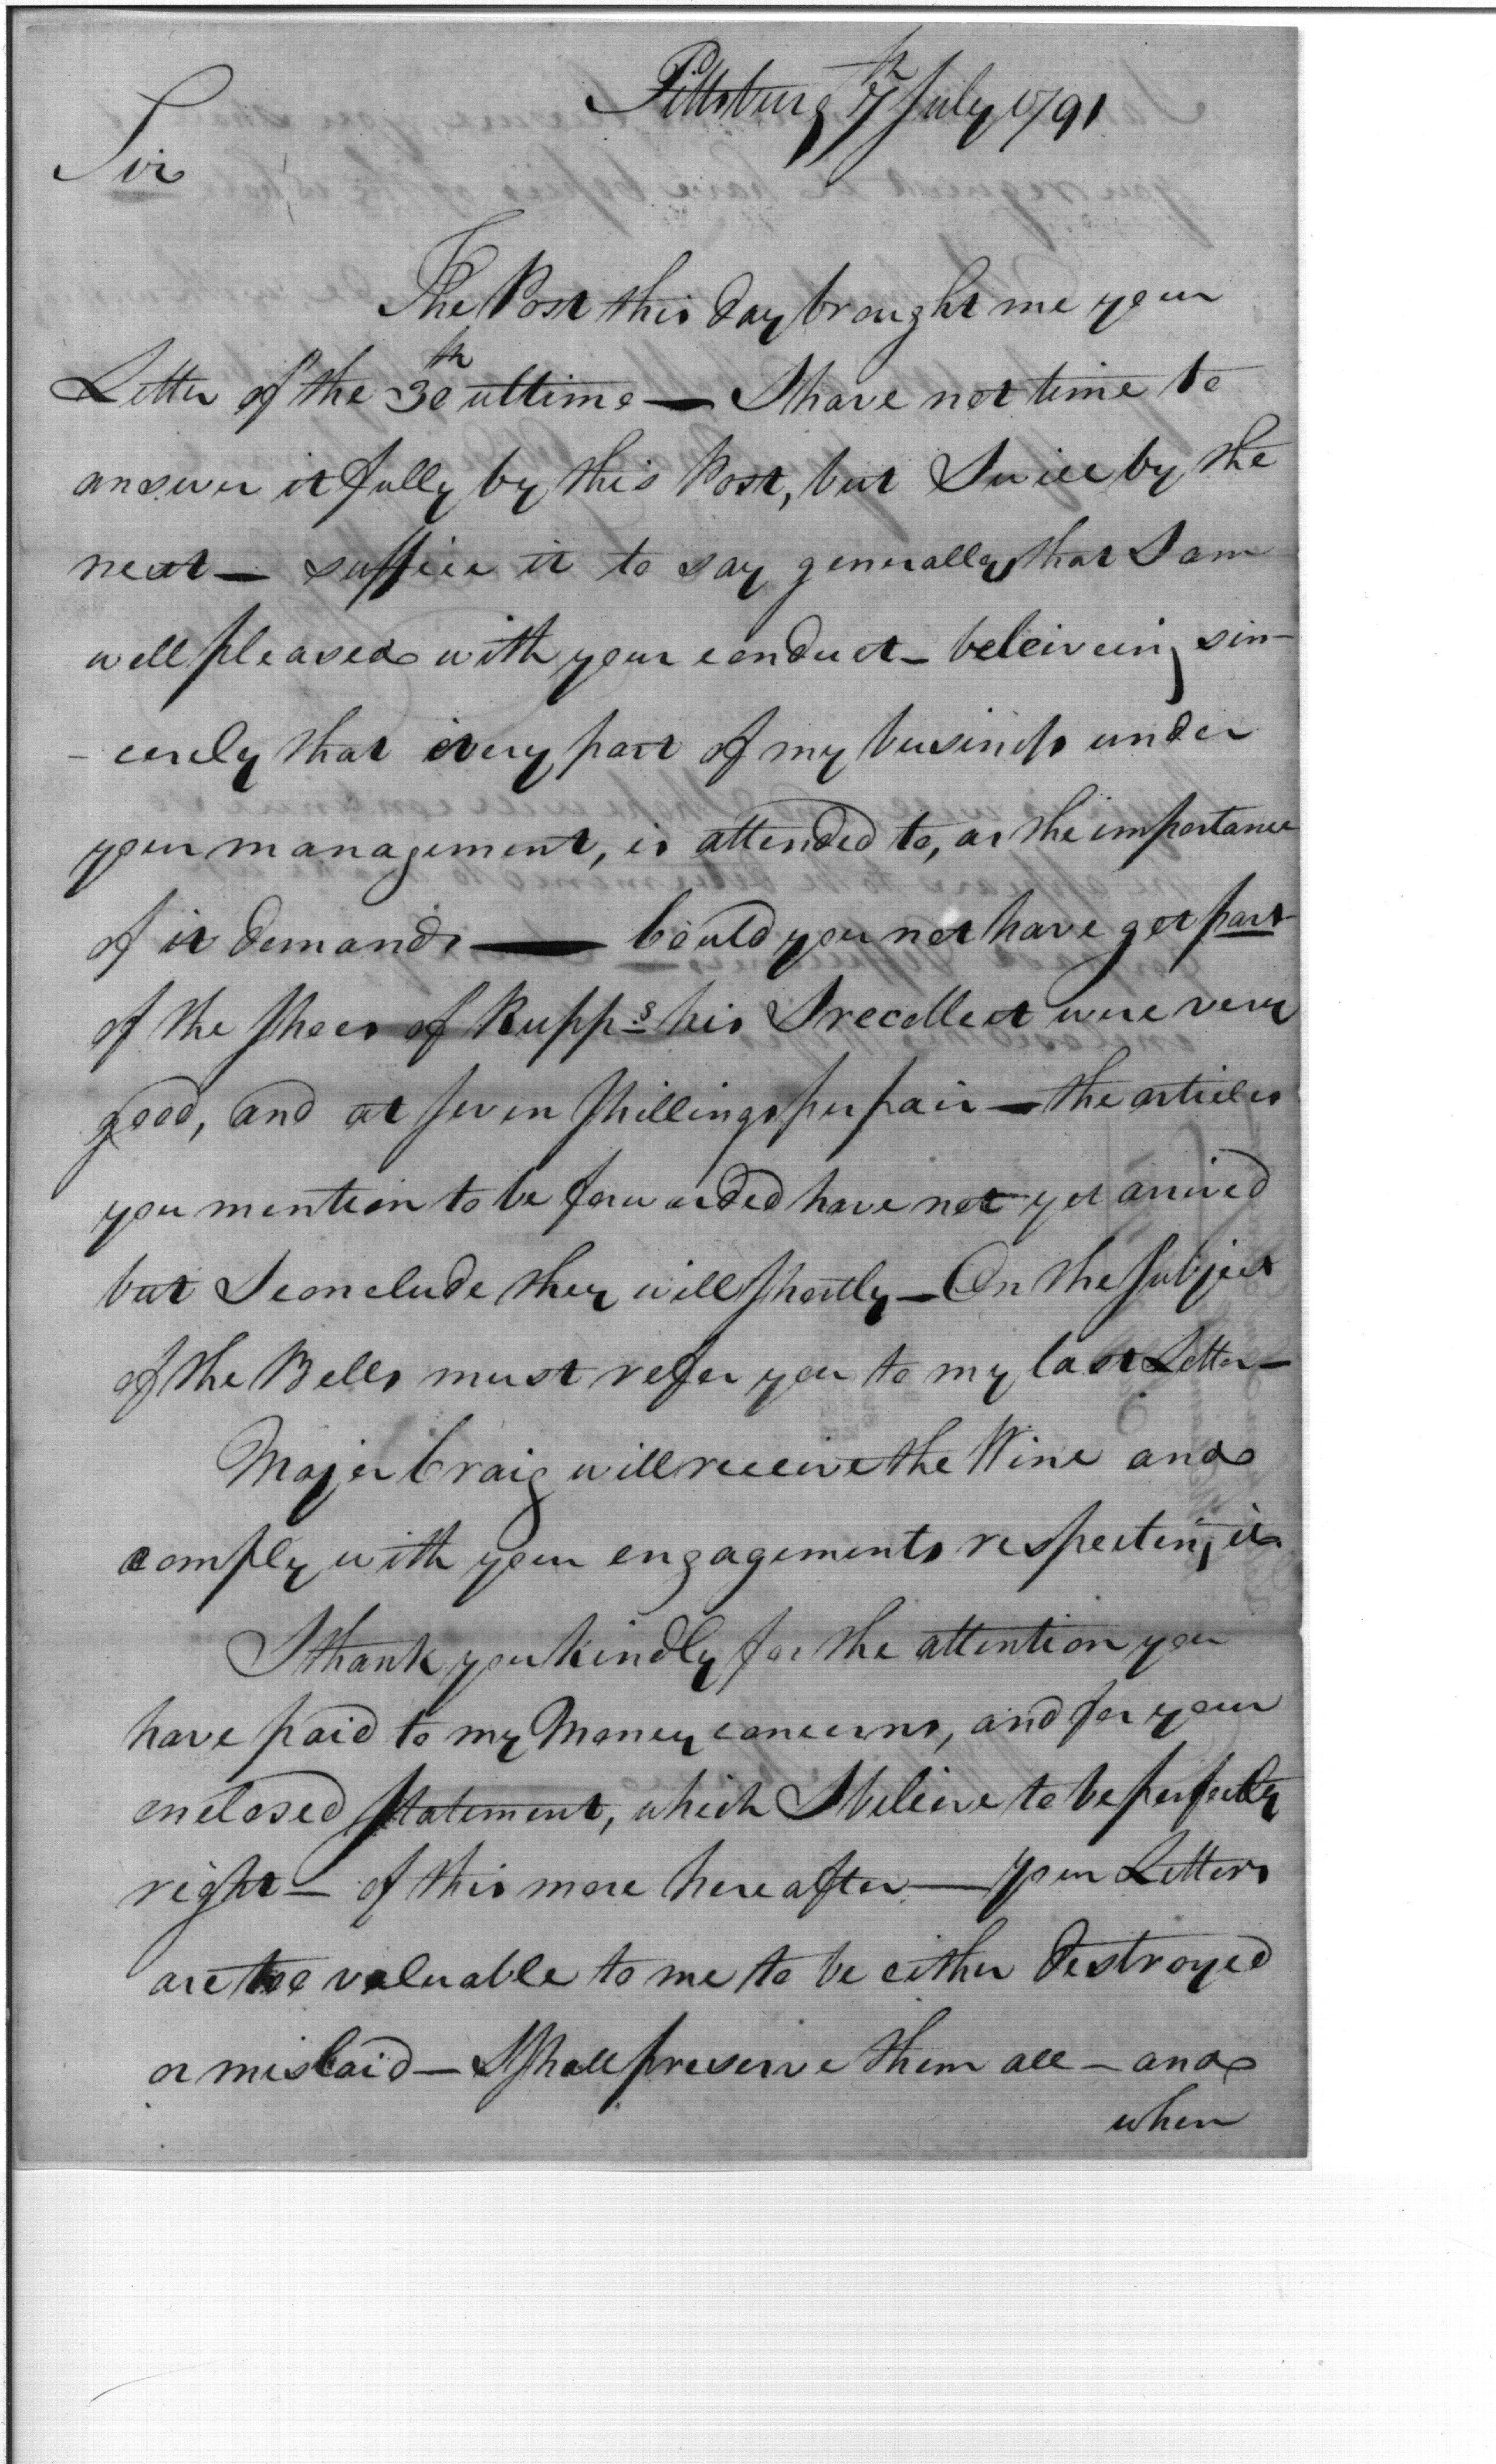 Pittsburg 7th July 1791
Sir
The Post this day brought me your
Letter of the 30th ultimo — I have not time to
answer it fully by this Post, but I will by the
next — suffice it to say generally that I am
well pleased with your conduct — beleiveing sin-
-cerely that every part of my business under
your management, is attended to, as the importance
of it demands — Could you not have got part
of the shoes of Rupp.s his I recollect were very
good, and at seven shillings per pair — the articles
you mention to be forwarded have not yet arrived
but I conclude they will shortly — On the subject
of the Bells must refer you to my last Letter —
Major Craig will receive the Wine and
comply with your engagements respecting it
I thank you kindly for the attention you
have paid to my Money concerns, and for your
enclosed statement, which I beleive to be perfectly
right — of this more hereafter — your Letters
are too valuable to me to be either destroyed
or mislaid — I shall preserve them all — and
when